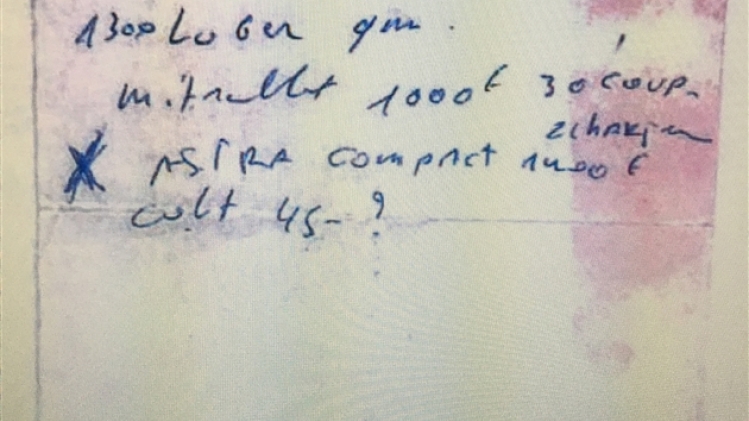 1300 Luger 9mm.
mitraillet 1000€ 30 coup.
2 charjeu
X ASTRA compact 1400€
colt 45- ?